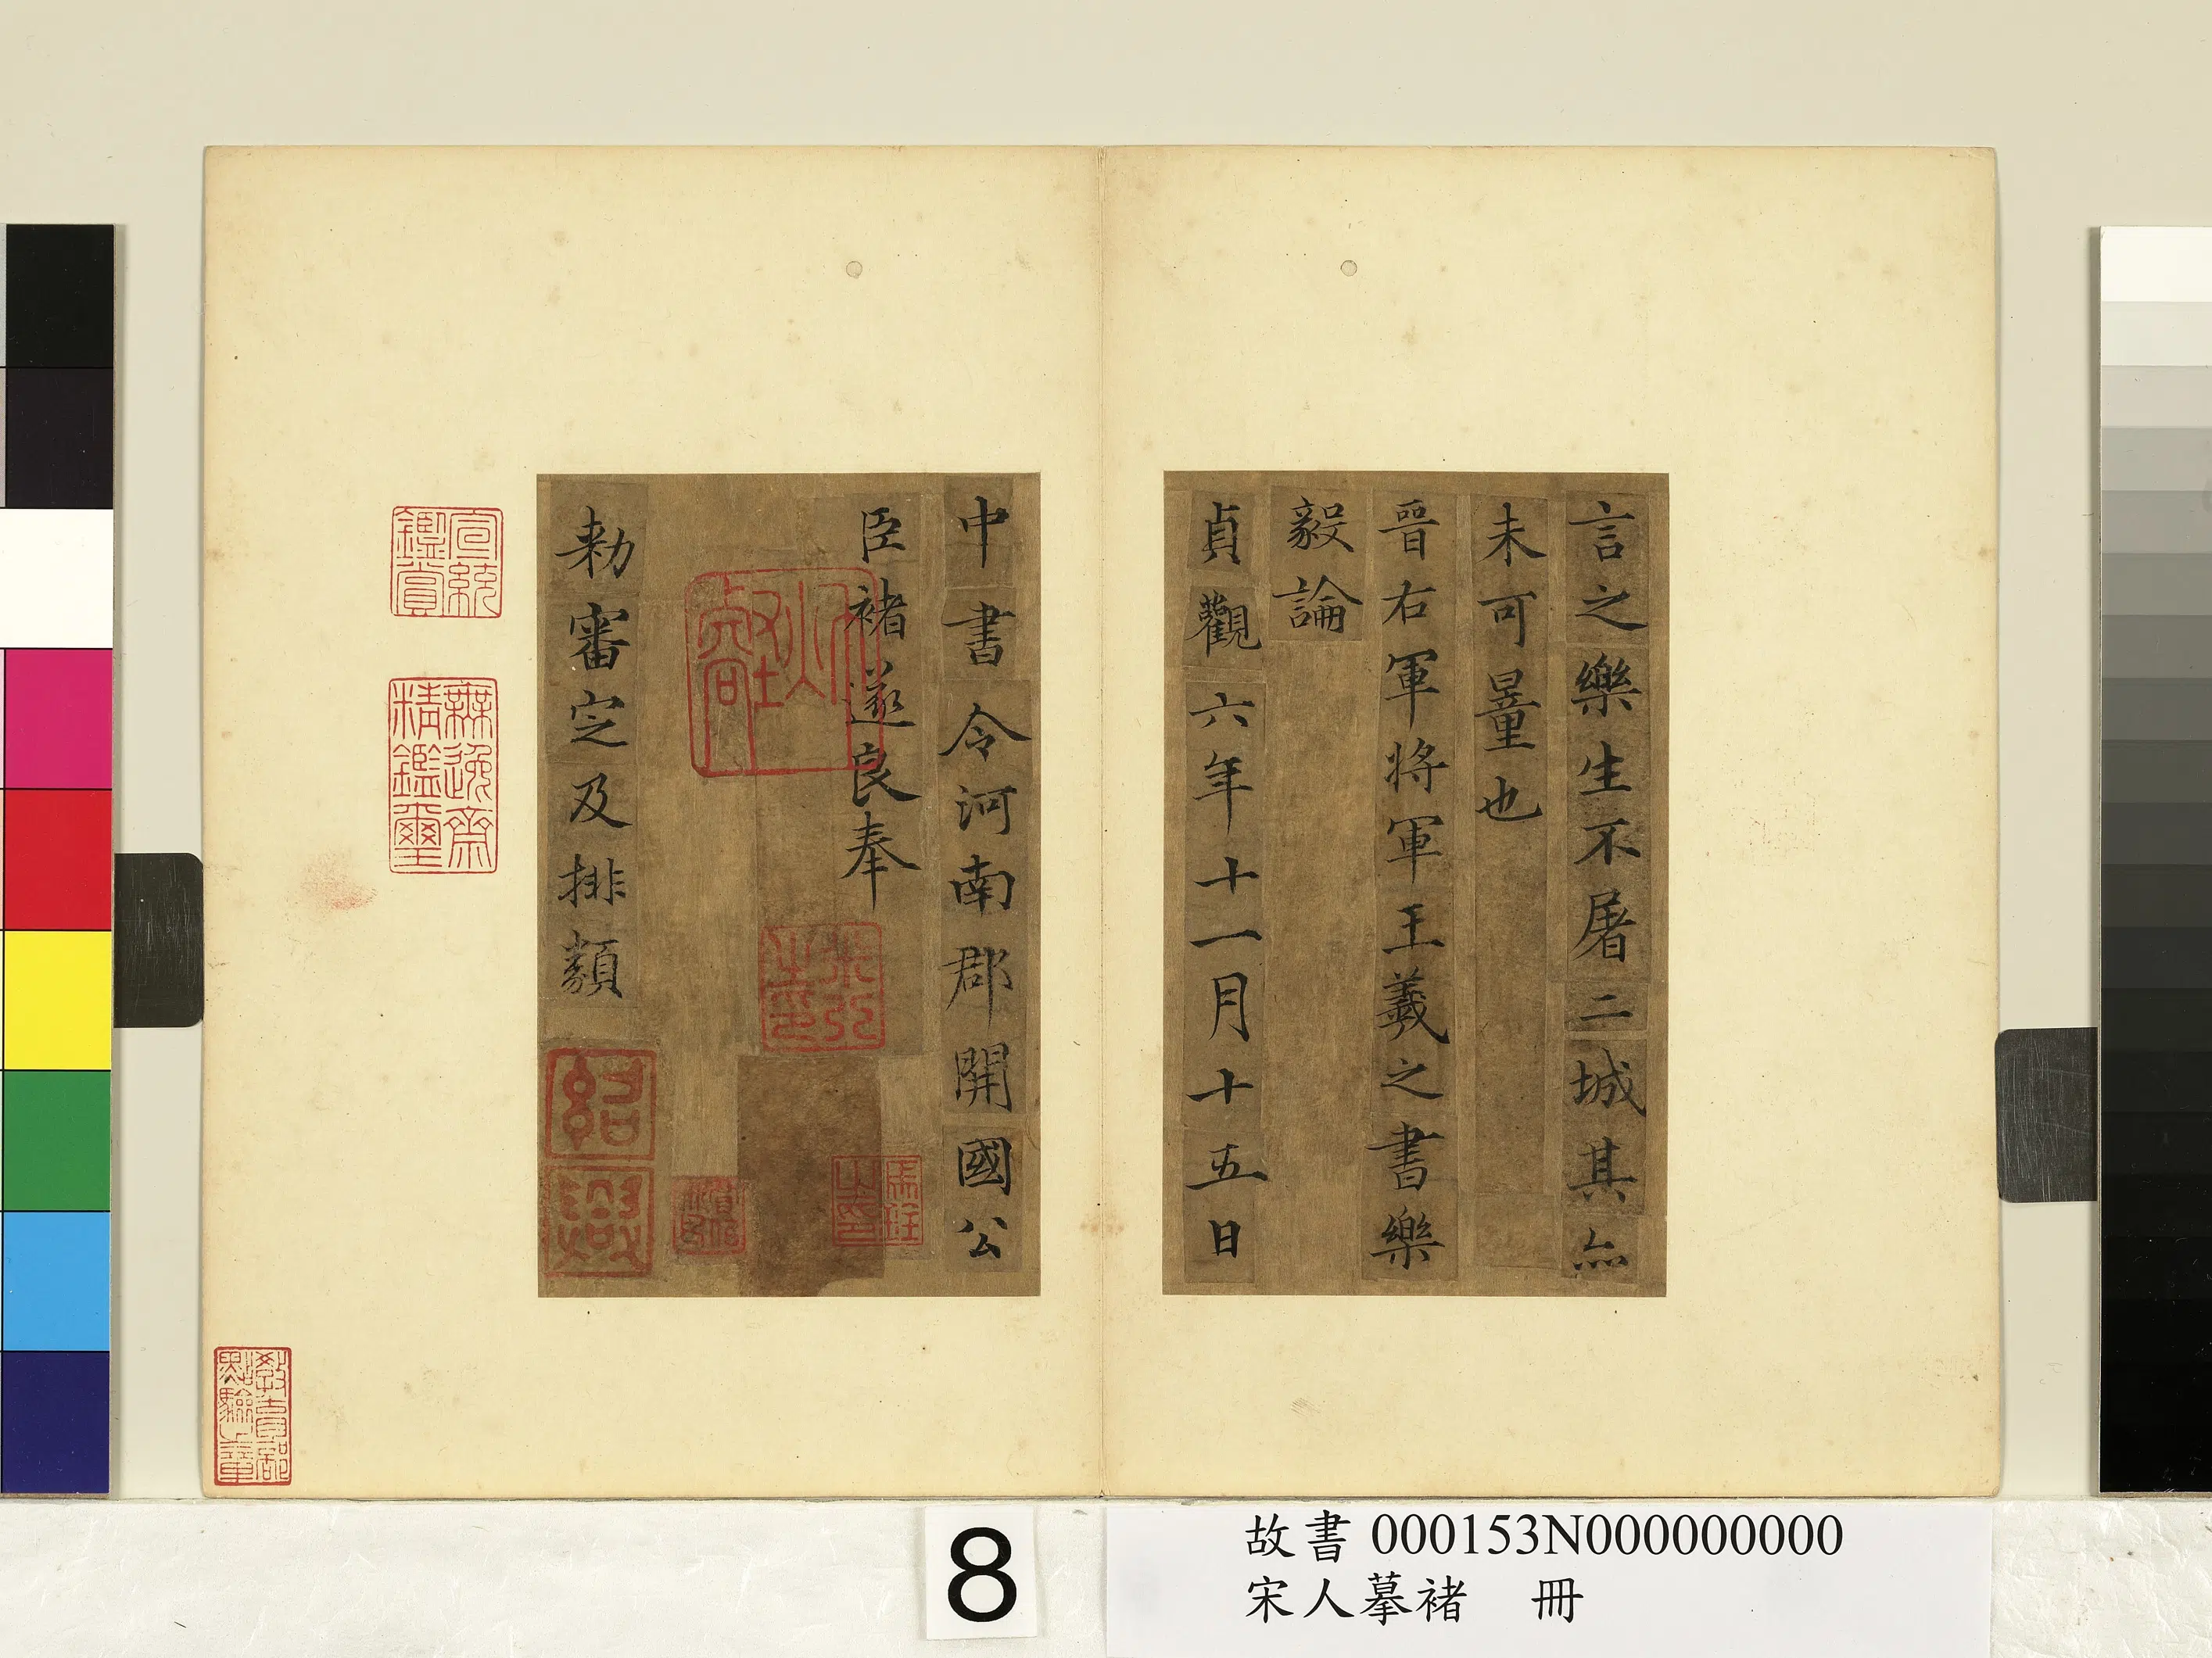 言之樂生不屠二城其亦
未可量也
晉右軍將軍王羲之書樂
毅論
貞觀六年十一月十五日
中書令河南郡開國公
臣褚遂良奉
勑審定及排類
紹
興
宣統
鑑賞
無逸齋
精鑑璽
教育部
點驗之章
8
故書 000153N000000000
宋人摹褚 冊